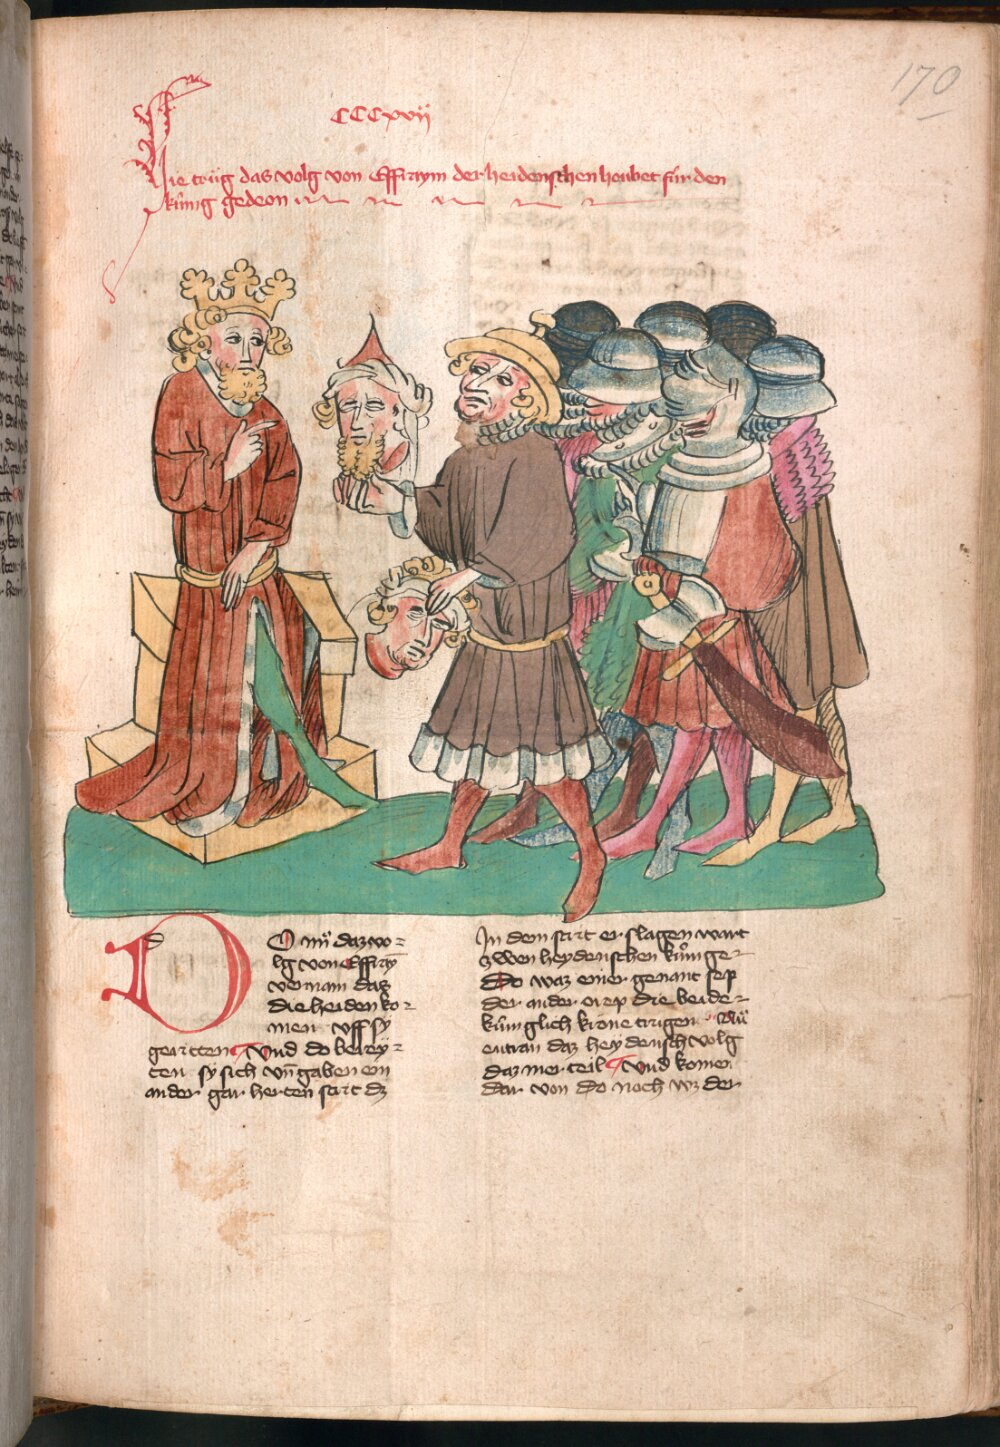 170
CCCxvij
Hie trüg das volg von Effraym der heidenschen houbet für den
künig gedeon
DO nuͦ daz vo-
lg von Effraÿ
vernam daz
die heiden ko-
men uff sy
geritten Und do berey-
ten sy sich vn̄ gaben ein
ander gar herten strit dz
In dem strit erslagen wart
zwen heydenschen künige
Do waz einer genant
der ander die beide
künglich krone trigen
entran daz heydensch volg
daz mer teil Und komen
dar von do noch wz der